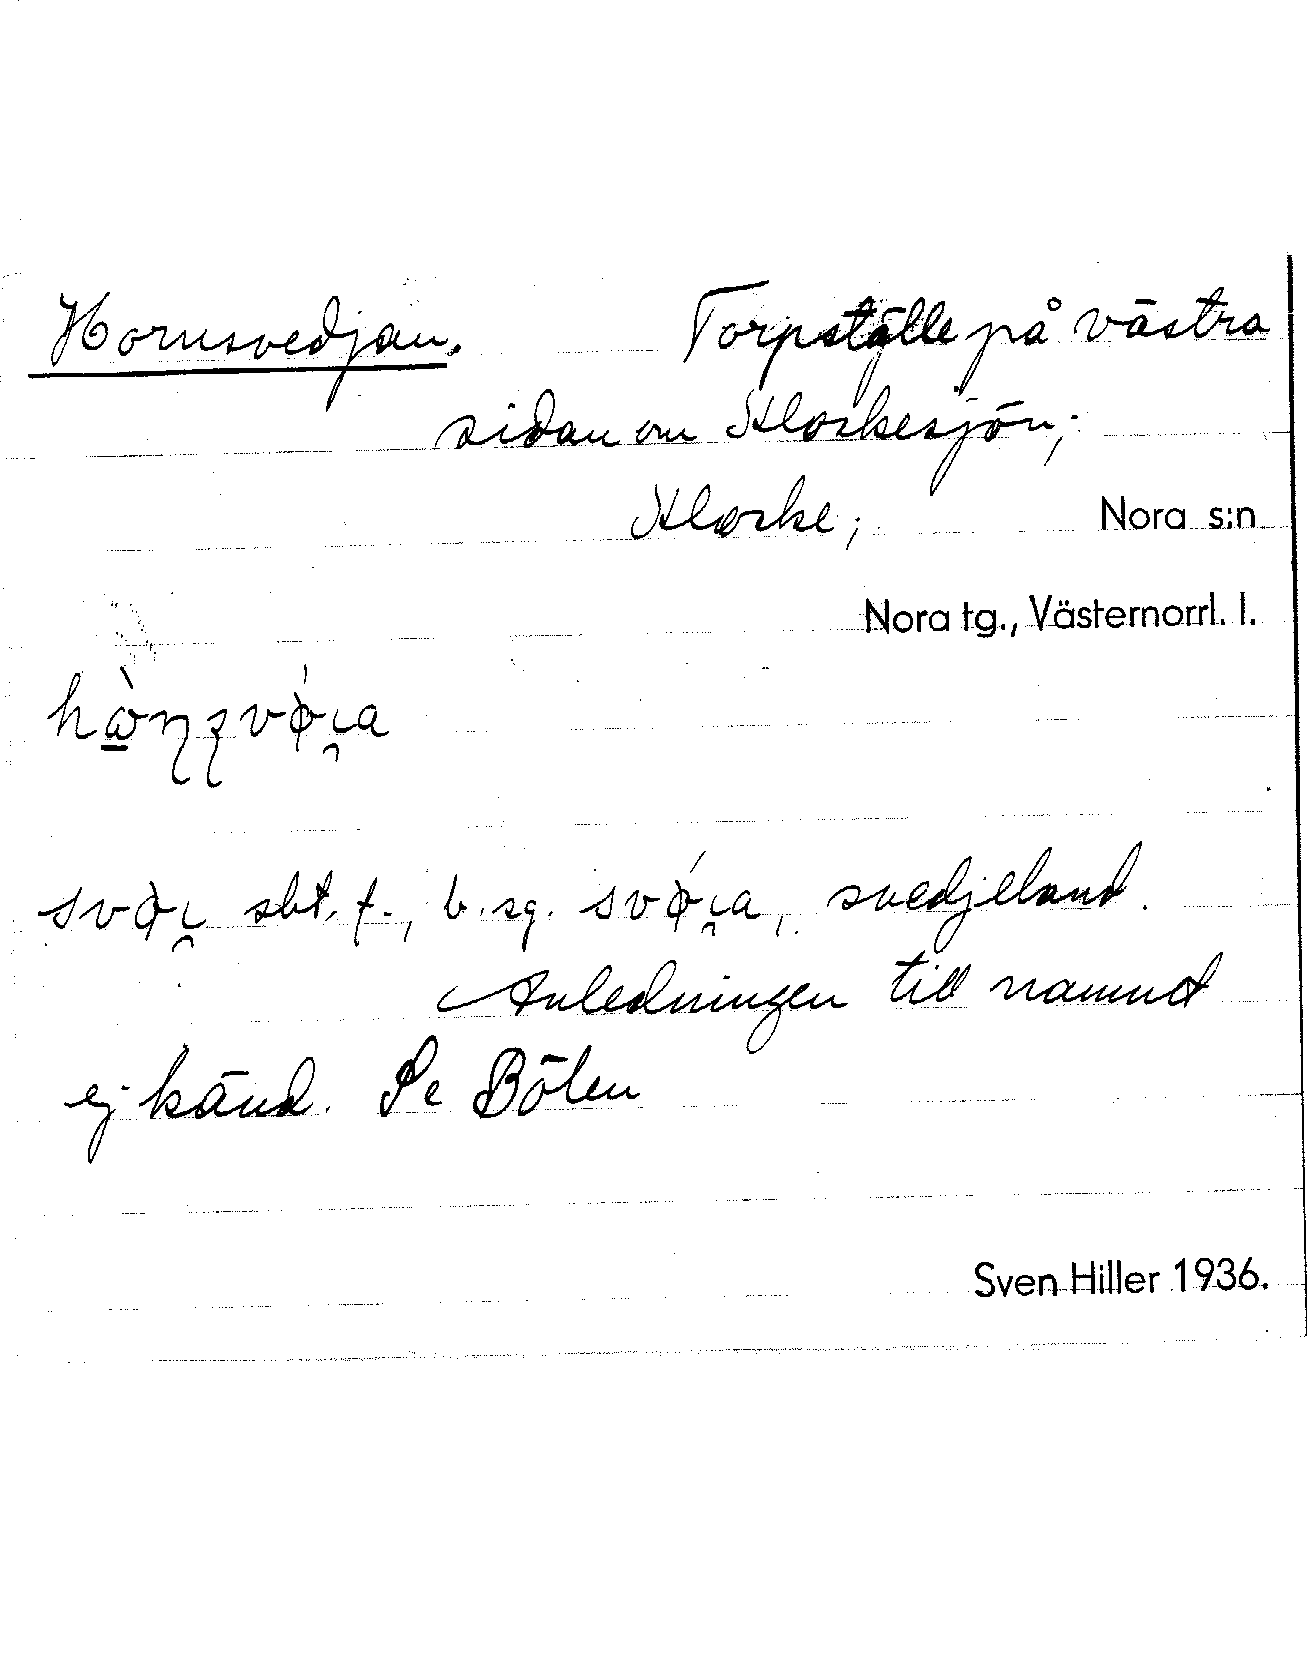 Hornsvedjan. Torpställe på västra
sidan om Klockesjön;
Klocke; Nora s:n
Nora tg., Västernorrl. l.
sbt. f., b.sg. svedjeland.
Anledningen till namnet
ej känd. Se Bölen
Sven Hiller 1936.